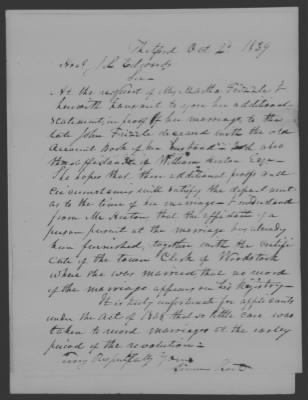 Thetford Oct 2d 1839
Hon J L Edwards
Sir
At the request of Mrs Martha Frizzle I
herewith transmit to you her additional
statement, in proof of her marriage to the
late John Frizzle deceased with the old
Account Book of her husband also
the affidavit of William Heaton Esqr
She hopes that these additional proofs and
circumstances will satisfy the department
as to the time of her marriage I understand
from Mr Heaton, that the affidavit of a
person present at the marriage has already
been furnished, together with the certifi
cate of the town Clerk of Woodstock
where she was married that no record
of the marriage appears on his Registry
It is truly unfortunate for applicants
under the act of 1838 that so little care was
taken to record marriages at the early
period of the revolution
Very Respectfully Yours
Simeon Short